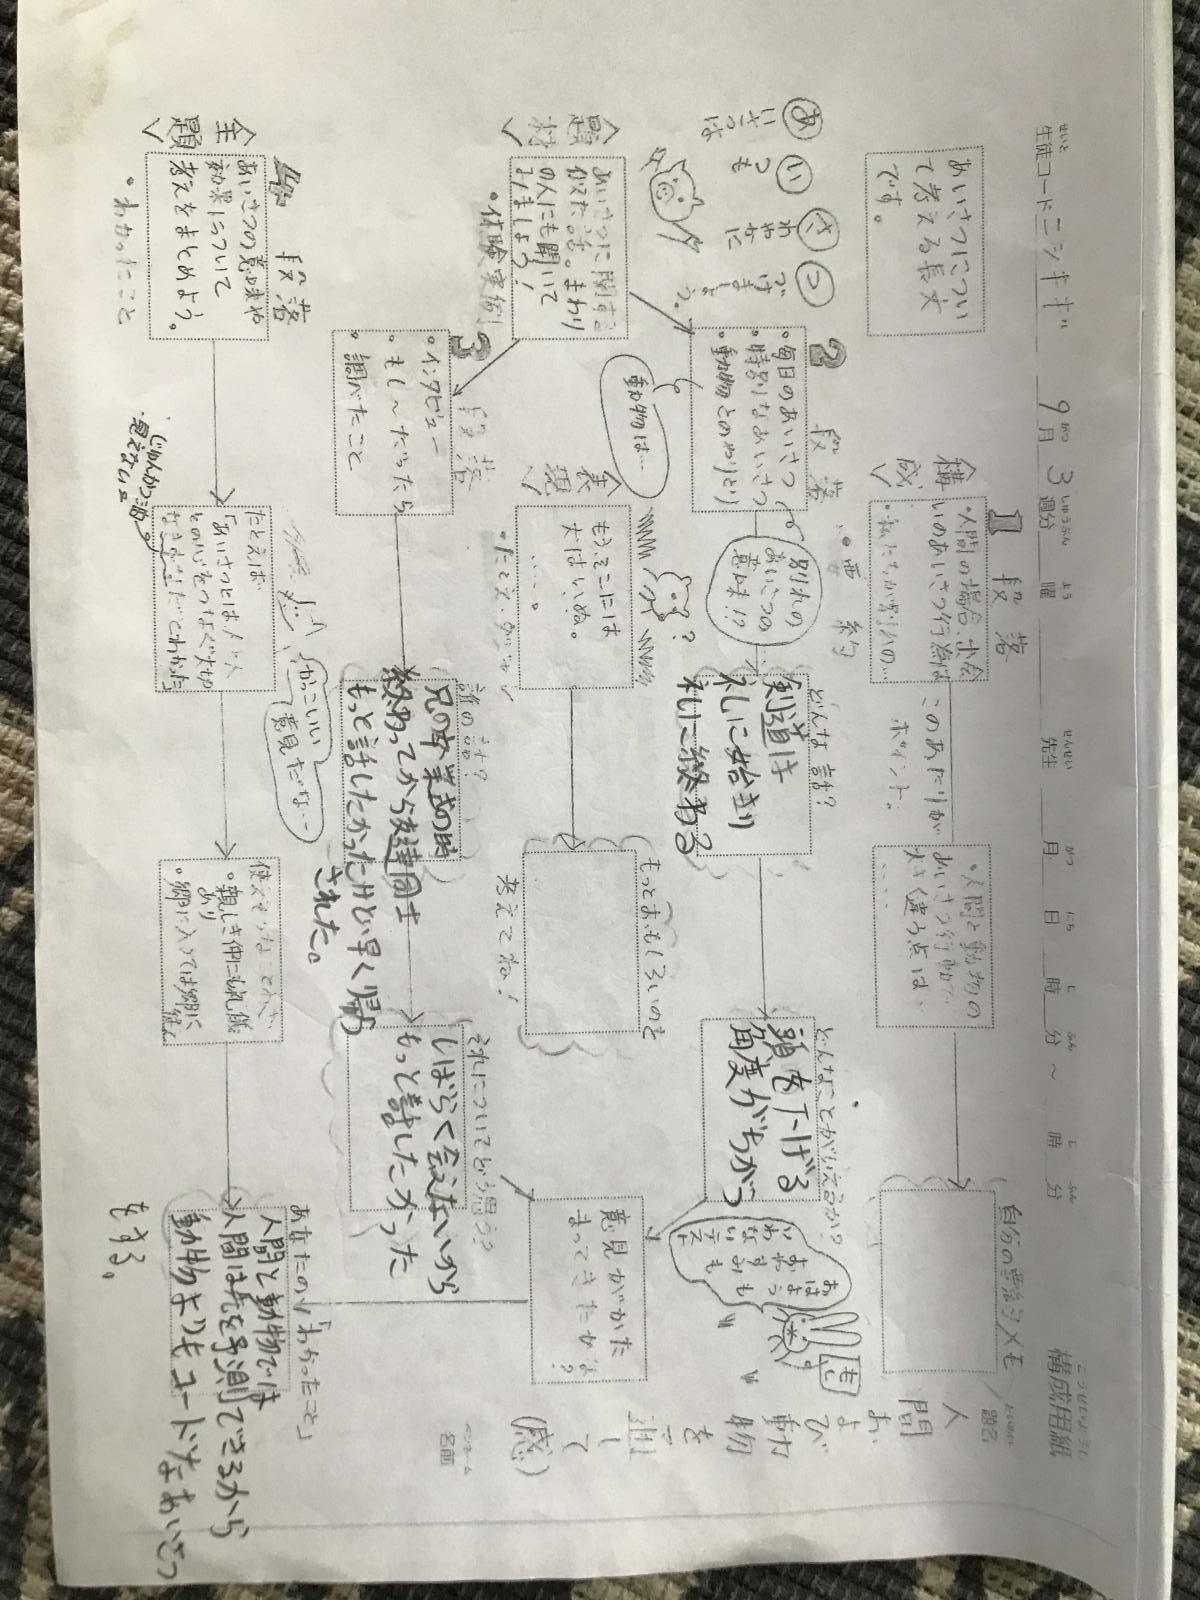 構成用紙
こうせいようし
生徒コード ニシキギ 9月3週分 曜 先生 月 日 時 分 ～ 時 分
題名
人間および動物を通して(感)
ペンネーム
名前
あいさつについ
て考える長文
です。
〈構成〉
1段落
・人間の場合、出会
いのあいさつ行為は
このあたりが
ポイント。
・人間と動物の
あいさつ行動で
大きく違う点は、
・・・・
自分の要約メモ
あいさつは
いつも
さわやかに
つづけましょう。
2段落
・毎日のあいさつ
・特別なあいさつ
・動物とのやりとり
・要約
別れの
あいさつの
意味!?
動物は…
どんな話?
剣道は
礼に始まり
礼に終わる
どんなことがいえるか?
頭を下げる
角度がちがう
おはようも
おやすみも
いわない
〈題材〉
あいさつに関する
似た話。まわり
の人にも聞いて
みましょう!
・体験実例
〈表現〉
もうそこには
犬はいぬ。
・・・・。
?
もっとおもしろいのを
考えてね!
意見がかた
まってきたかな?
3段落
・インタビュー
・もし～だったら
・調べたこと
誰の話?
兄の卒業式の時
終わってから友達同士
もっと話したかったけど早く帰
された。
それについてどう思う?
しばらく会えないから
もっと話したかった
〈主題〉
4段落
あいさつの意味や
効果について
考えをまとめよう。
・わかったこと
たとえば
「あいさつとは人と人
との心をつなぐ大切
かっこいい
意見だな～
使えそうなことわざ
・親しき仲にも礼儀
あり
・郷に入っては郷に
従え
あなたの「わかったこと」
人間と動物では
人間は先を予測できるから
動物よりもユニークなあいさつ
をする。